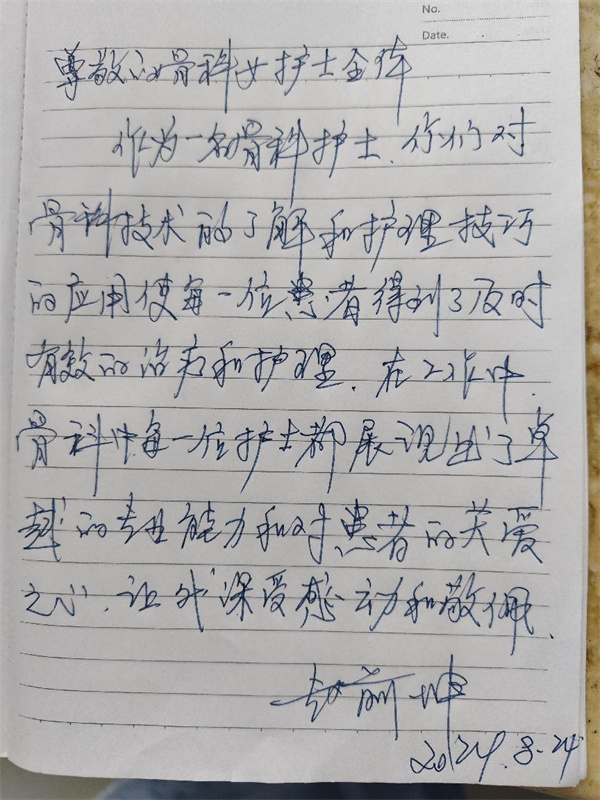 No.
Date.
尊敬的骨科女护士全体
作为一名骨科护士.你们对
骨科技术的了解和护理技巧
的应用使每一位患者得到了及时
有效的治疗和护理.在工作中.
骨科中每一位护士都展现出了卓
越的专业能力和对患者的关爱
之心.让我深受感动和敬佩.
赵前坤
2024.8.24